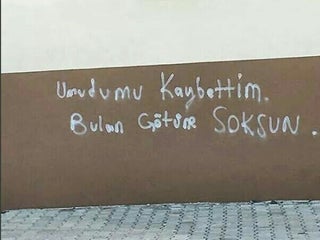 Umudumu Kaybettim.
Bulan Götüne SOKSUN.